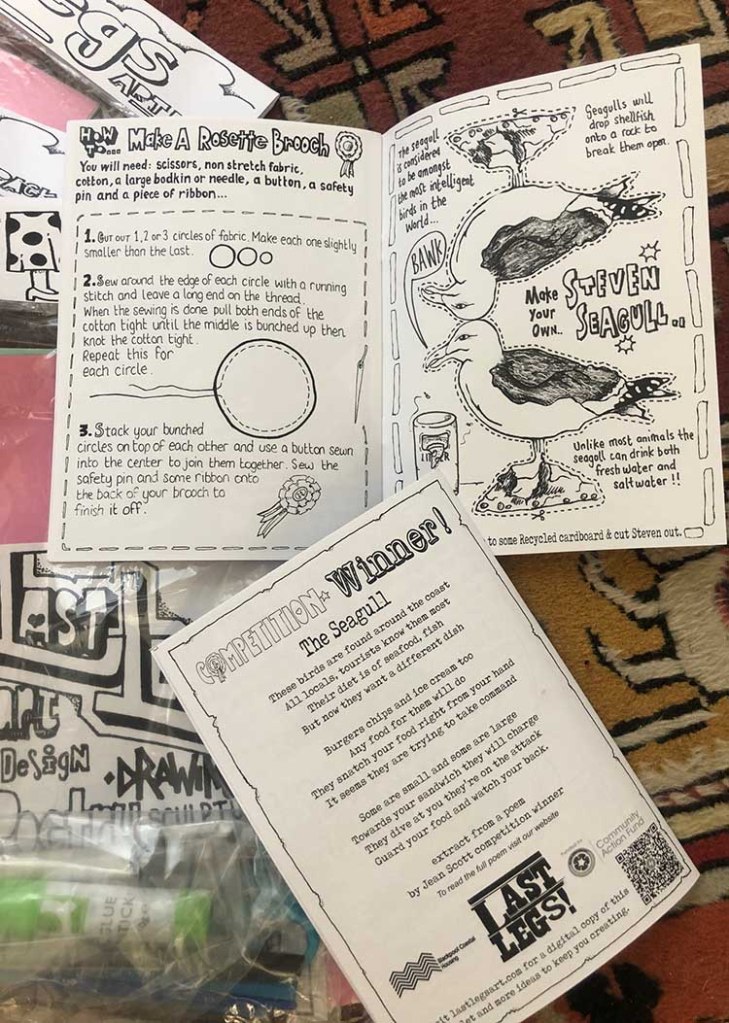 egs
ART
PACK
How
To...
Make A Rosette Brooch
You will need: scissors, non stretch fabric,
cotton, a large bodkin or needle, a button, a safety
pin and a piece of ribbon...
1. Cut out 1, 2 or 3 circles of fabric. Make each one slightly
smaller than the last.
2. Sew around the edge of each circle with a running
stitch and leave a long end on the thread.
When the sewing is done pull both ends of the
cotton tight until the middle is bunched up then
knot the cotton tight.
Repeat this for
each circle.
3. Stack your bunched
circles on top of each other and use a button sewn
into the center to join them together. Sew the
safety pin and some ribbon onto
the back of your brooch to
finish it off.
The seagull
is considered
to be amongst
the most intelligent
birds in the
world...
Seagulls will
drop shellfish
onto a rock to
break them open.
BAWK
Make
Your
Own..
STEVEN
SEAGULL..
LITTER
Unlike most animals the
seagull can drink both
fresh water and
saltwater !!
to some Recycled cardboard & cut Steven out.
COMPETITION Winner!
The Seagull
These birds are found around the coast
All locals, tourists know them most
Their diet is of seafood, fish
But now they want a different dish
Burgers chips and ice cream too
Any food for them will do
They snatch your food right from your hand
It seems they are trying to take command
Some are small and some are large
Towards your sandwich they will charge
They dive at you they're on the attack
Guard your food and watch your back.
extract from a poem
by Jean Scott competition winner
To read the full poem visit our website
Blackpool Coastal
Housing
LAST
LEGS!
Community
Action Fund
it lastlegsart.com for a digital copy of this
let and more ideas to keep you creating.
LAST
art
Design
DRAWIN
SCULPTU
GLUE
STICK